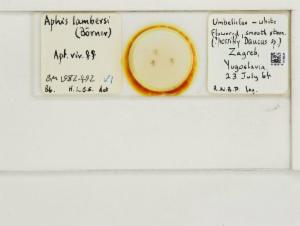 Aphis lambersi
(Börner)
Apt. viv. ♀♀
BM 1982-492
Det
Umbellifer - white
flowered, smooth stem.
Daucus sp.)
Zagreb,
Yugoslavia
23 July 64
leg.